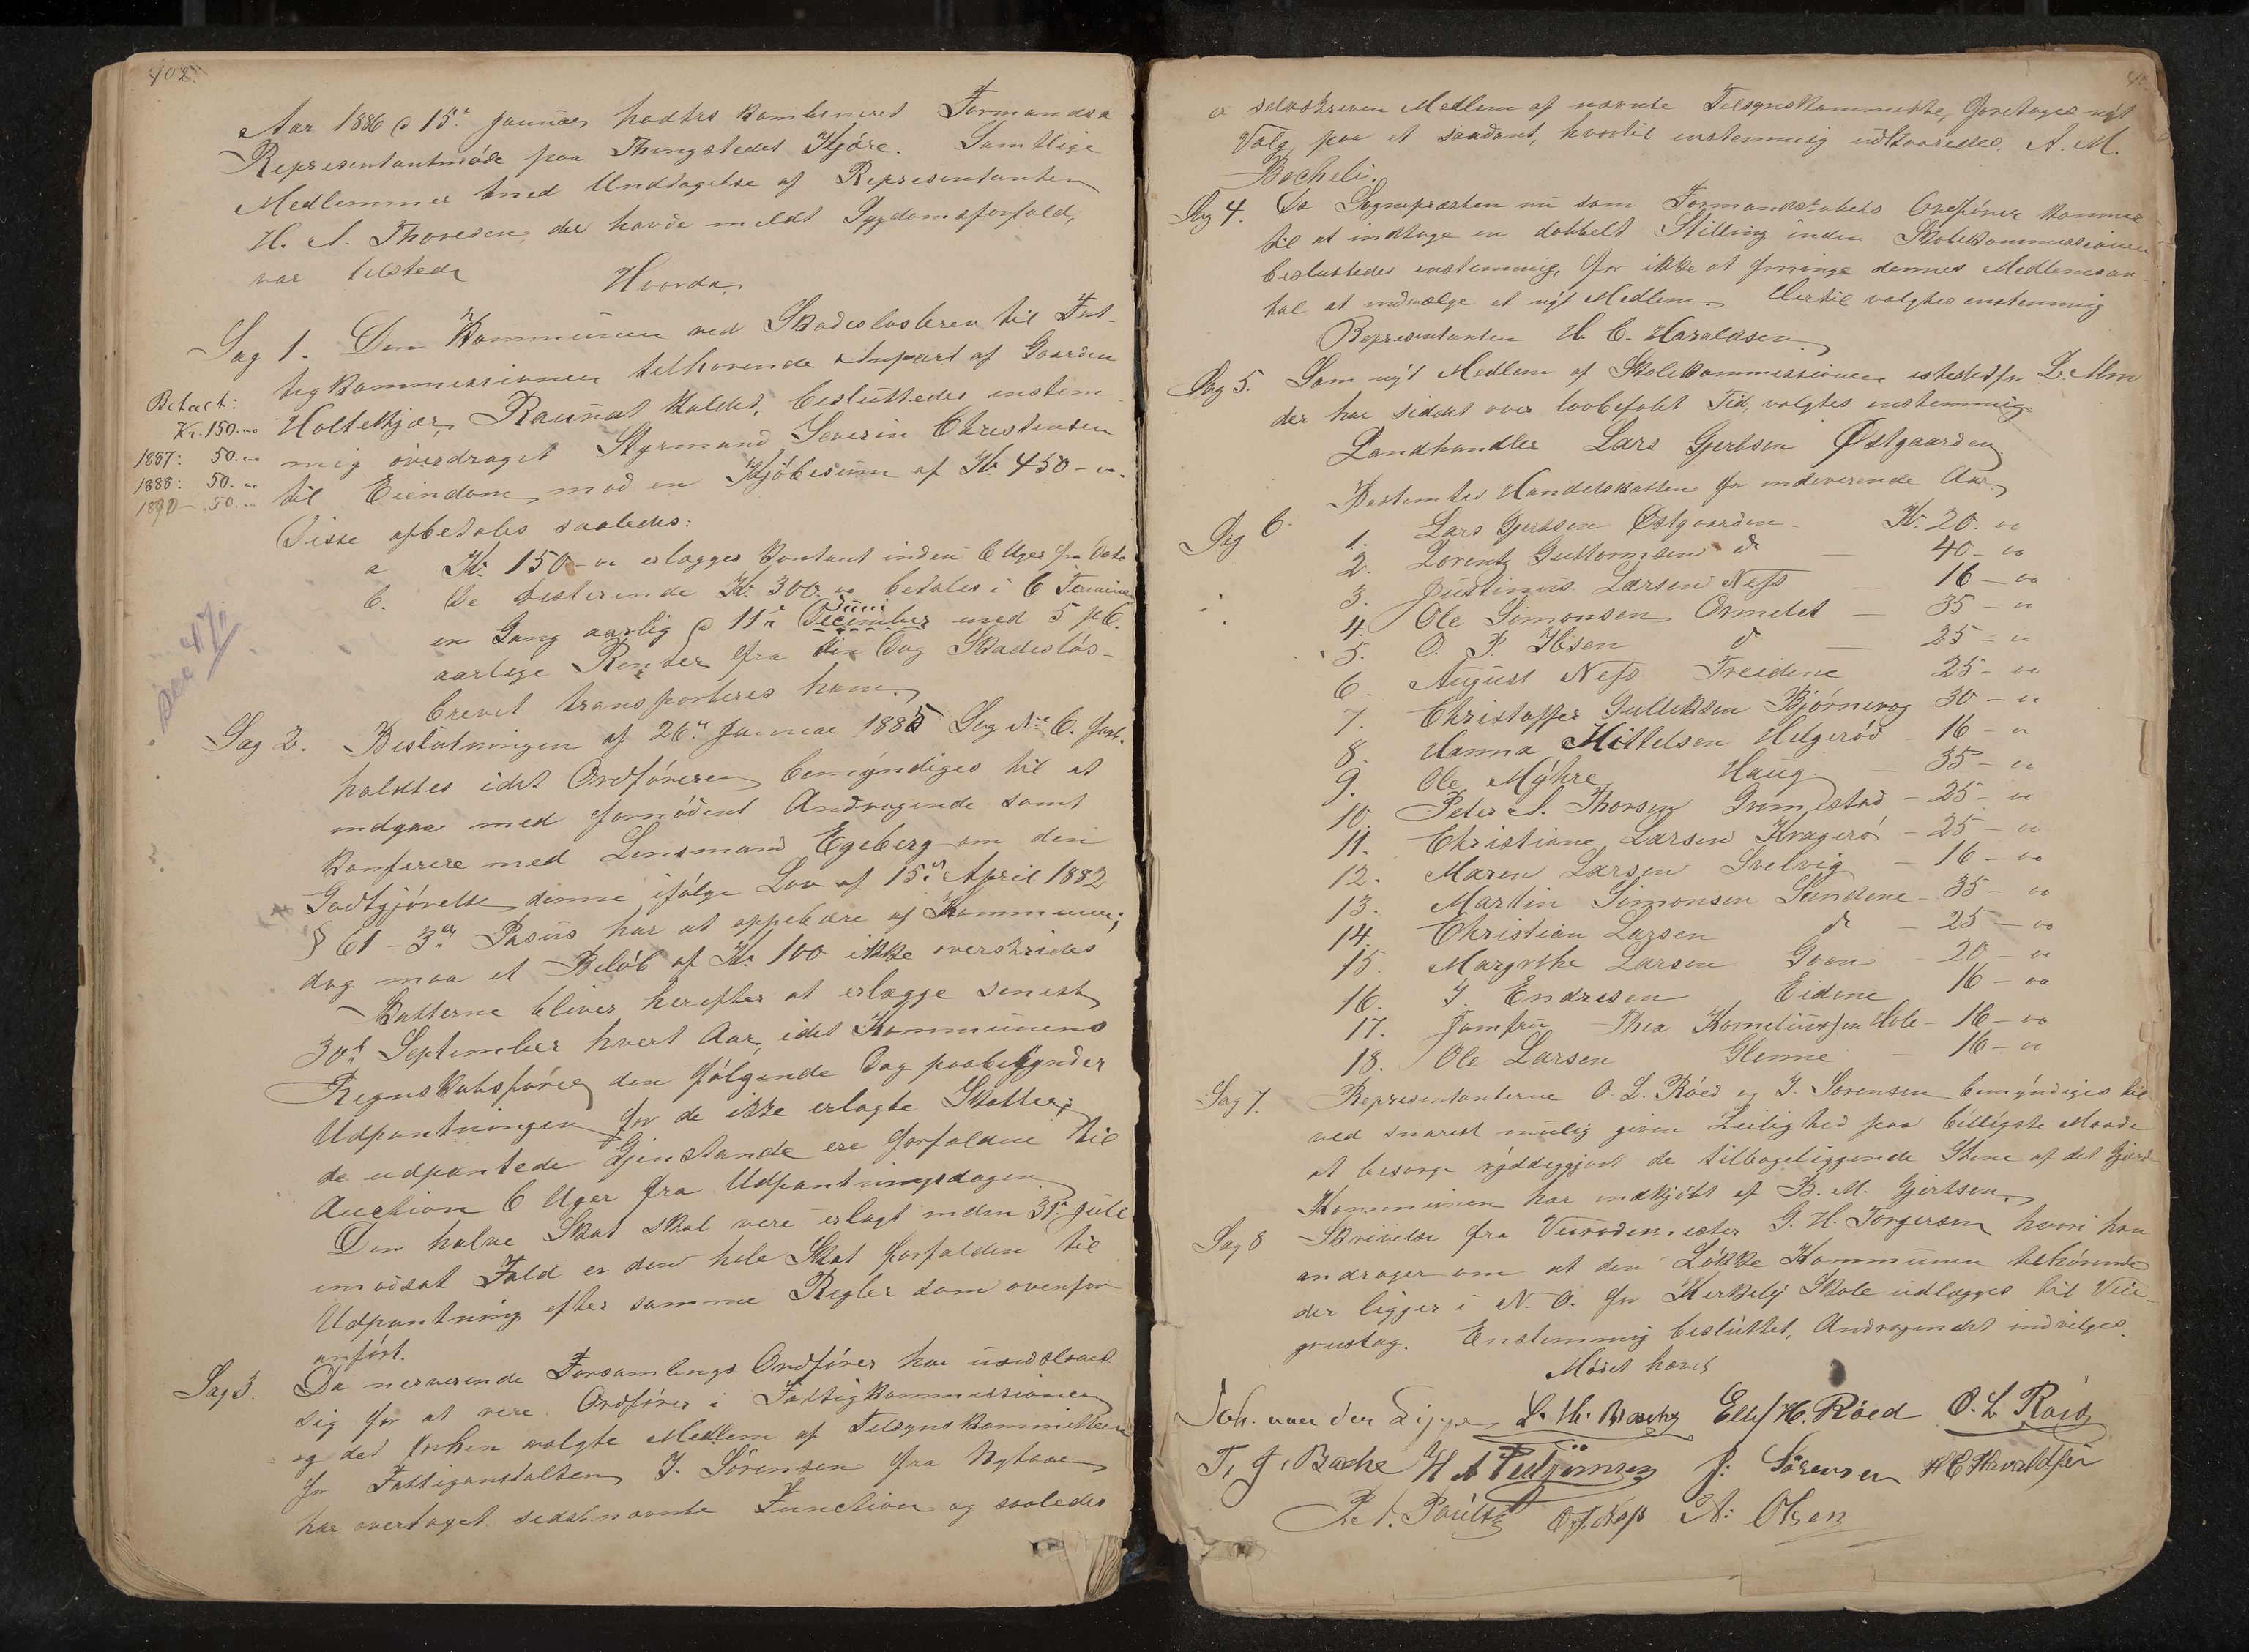 402.
Aar 1886 d 15de Januar holdtes kombineret Formands &
Representantmøde paa Thingstedet Kjøre. Samtlige
Medlemmer med Undtagelse af Representanten
H. A. Thoresen, der havde meldt Sygdomsforfald,
var tilstede
Hvorda
Sag 1. Den Kommunen ved Skadesløsbrev til Fat-
tigkommissionen tilhørende Anpart af Gaarden
Holtekjær, Raunat kaldet, besluttedes enstem-
mig overdraget Styrmand Severin Christensen
til Eiendom mod en Kjøbesum af Kr. 450-00.
Betalt:
Kr. 150.00
1887: 50.00
1888: 50.00
1890 - 50.00
Disse afbetales saaledes:
a Kr. 150-00 erlægges kontant inden 6 Uger fra Dato
b. De resterende Kr. 300.00 betales i 6 Terminer
en Gang aarlig d 11te December med 5 pC.
Juni
aarlige Renter fra den Dag Skadesløs-
brevet transporteres ham.
Sag 2. Beslutningen af 26de Januar 1885 Sag No 6. fast-
holdtes idet Ordføreren bemyndiges til at
indgaa med fornødent Andragende samt
konferere med Lensmand Egeberg om den
Godtgjørelse denne ifølge Lov af 15de April 1882
§ 61 - 3de Pasus har at oppebære af Kommunen;
dog maa et Beløb af Kr. 100 ikke overskrides
Skatterne bliver herefter at erlægge senest
30te September hvert Aar, idet Kommunens
Regnskabsfører den følgende Dag paabegynder
Udpantningen for de ikke erlagte Skatter;
de udpantede Gjenstande ere forfaldne til
Auction 6 Uger fra Udpantningsdagen.
Den halve Skat skal være erlagt inden 31te Juli
i modsat Fald er den hele Skat forfalden til
Udpantning efter samme Regler som ovenfor
anført.
Sag 3. Da nærværende Forsamlings Ordfører har
sig for at være Ordfører i Fattigkommissionen
og det forhen valgte Medlem af Tilsynskommitteen
for Fattiganstalten J. Sørensen fra
har overtaget sidstnævnte Function og saaledes
er selvskreven Medlem af nævnte Tilsynskommitte, foretoges nyt
Valg paa et saadant, hvortil enstemmig udkaaredes A. M.
Bacheli.
Sag 4. Da Sognepræsten nu som Formandskabets Ordfører kommer
til at indtage en dobbelt Stilling inden Skolekommissionen
besluttedes enstemmig, for ikke at forringe dennes Medlemsan-
tal at indvælge et nyt Medlem. Hertil valgtes enstemmig
Representanten H. C. Haraldsen
Sag 5. Som nyt Medlem af Skolekommissionen istedetfor L.
der har siddet over lovbefalt Tid, valgtes enstemmig
Landhandler Lars Gjertsen Østgaarden
Sag 6. Bestemtes Handelsskatten for indeværende Aar
1. Lars Gjertsen Østgaarden - Kr. 20.00
2. Lorentz Guttormsen do - 40-00
3. Justinus Larsen Ness - 16-00
4. Ole Simonsen Ormelet - 35-00
5. O. P. Ibsen do - 25-00
6. August Ness Treidene 25-00
7. Christoffer Gulliksen Bjørnevag 30-00
8. Hanna Mikkelsen Helgerød - 16-00
9. Ole Myhre Haug - 35-00
10. Peter A. Thorsen Grimestad - 25-00
11. Christiane Larsen Kragerø - 25-00
12. Maren Larsen Svelvig - 16-00
13. Martin Simonsen Sandene - 35-00
14. Christian Larsen do - 25-00
15. Margrethe Larsen Goen - 20-00
16. J. Endresen Eidene 16-00
17. Jomfru Thea Korneliussen Hole - 16-00
18. Ole Larsen Glenne - 16-00
Sag 7. Representanterne O. L. Røed og J. Sørensen bemyndiges til
ved snarest mulig given Leilighed paa billigste Maade
at besørge ryddiggjort de tilbageliggende Stene af det Gjærde
Kommunen har indkjøbt af B. M. Gjertsen.
Sag 8 Skrivelse fra Veirodemester G. H. Torgersen hvori han
andrager om at den Løkke Kommunen tilhørende
der ligger i N. O. for Kirkelig Skole udlægges til Vei-
grustag. Enstemmig besluttet, Andragendet indvilges.
Mødet hævet
Joh. van der Lippe L. M. Bache Ellef H. Røed O. L. Røed
T. J. Bache J. Sørensen H C Haraldsen
P. A. Poulsen O. J. Ness A. Olsen